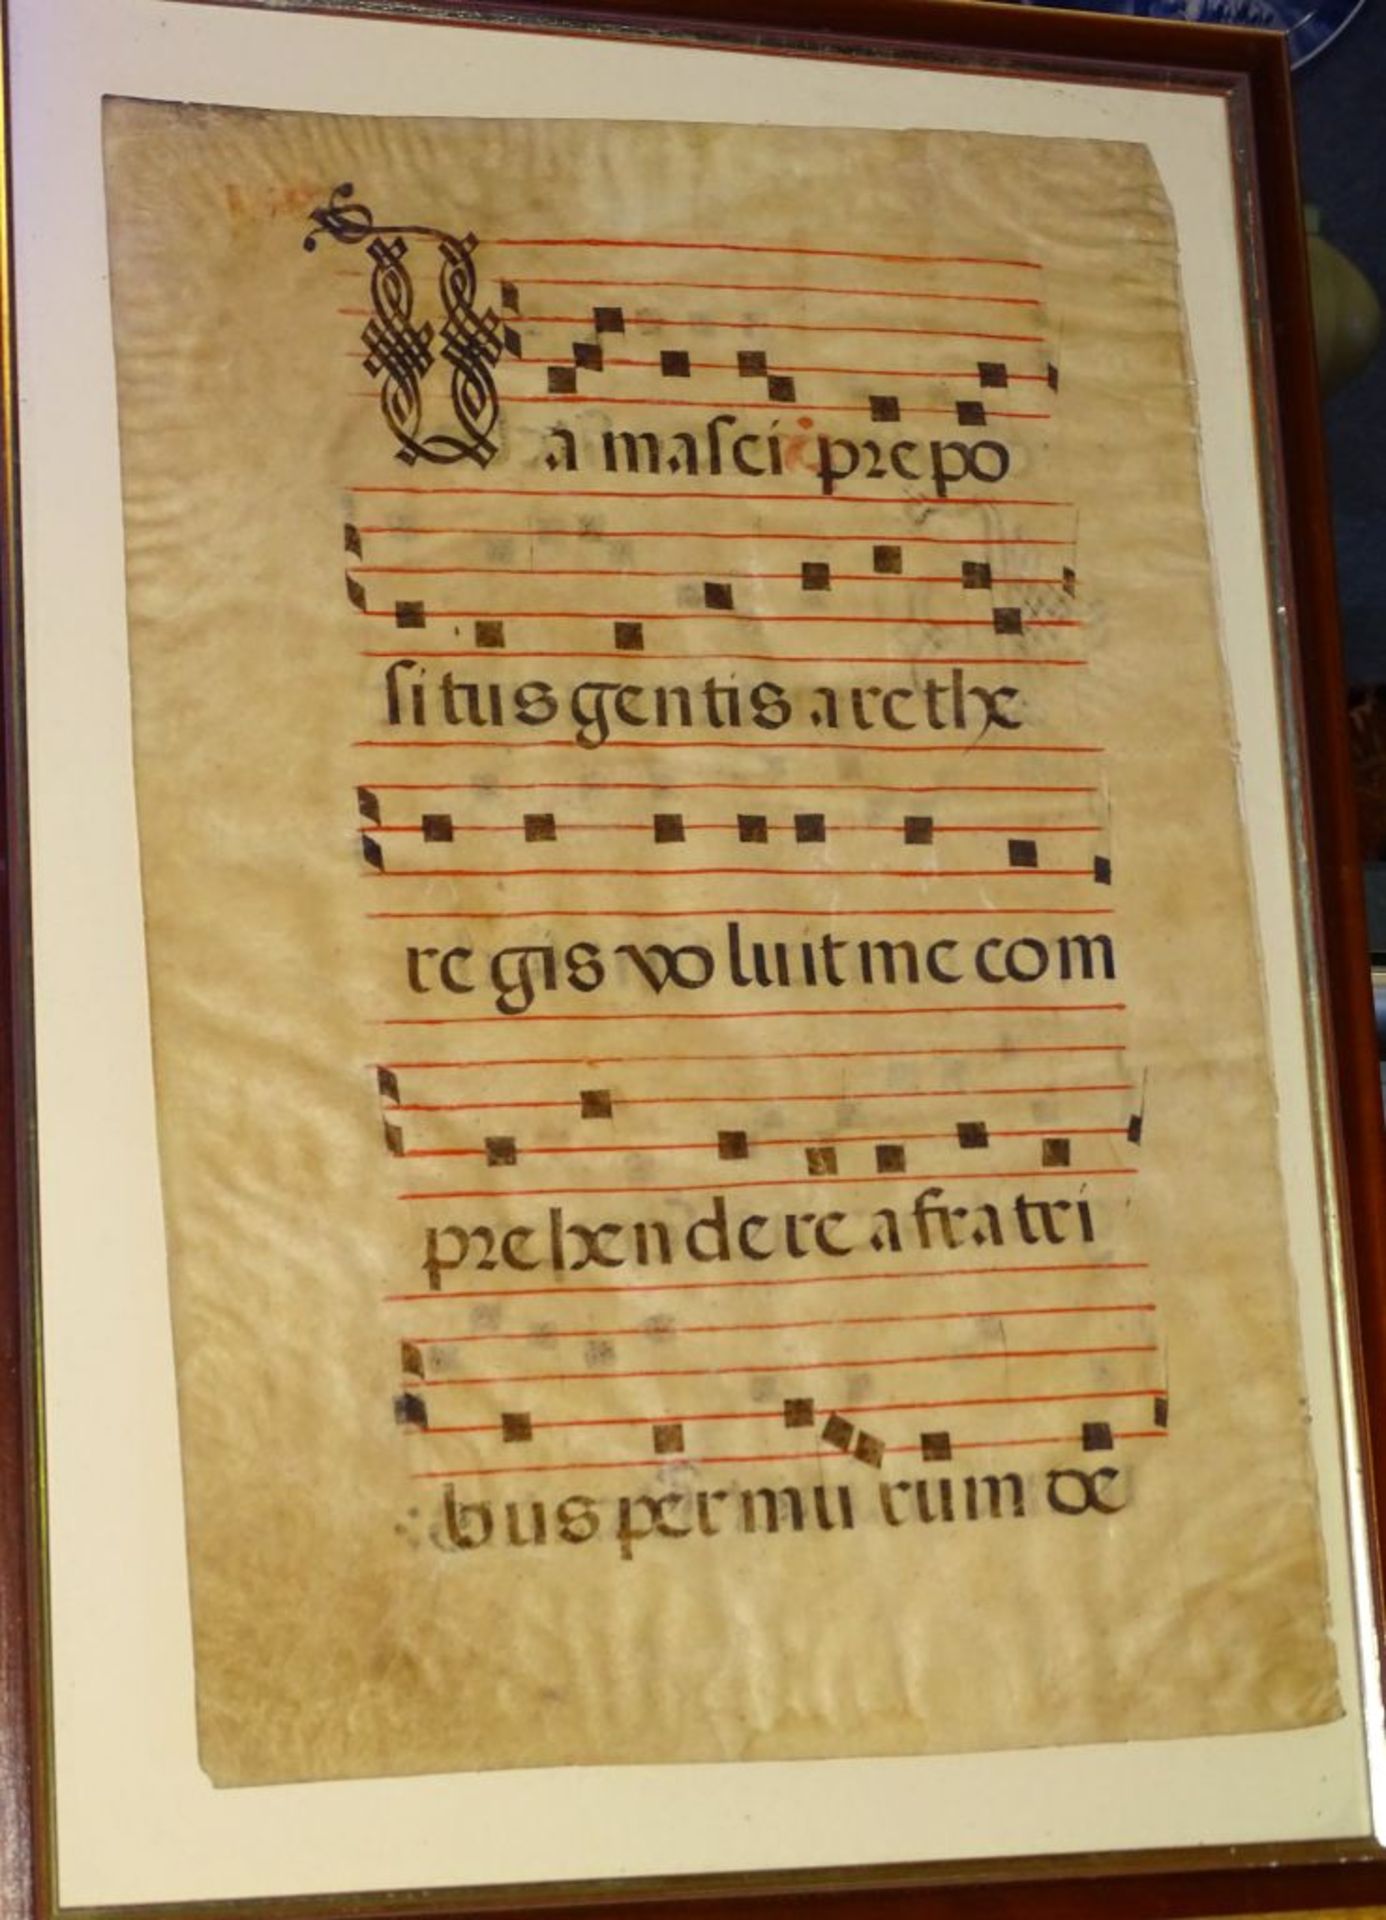 Da maſci prepo
ſitus gentis arethe
regis voluit me com
prehendere a fratri
bus per murum de